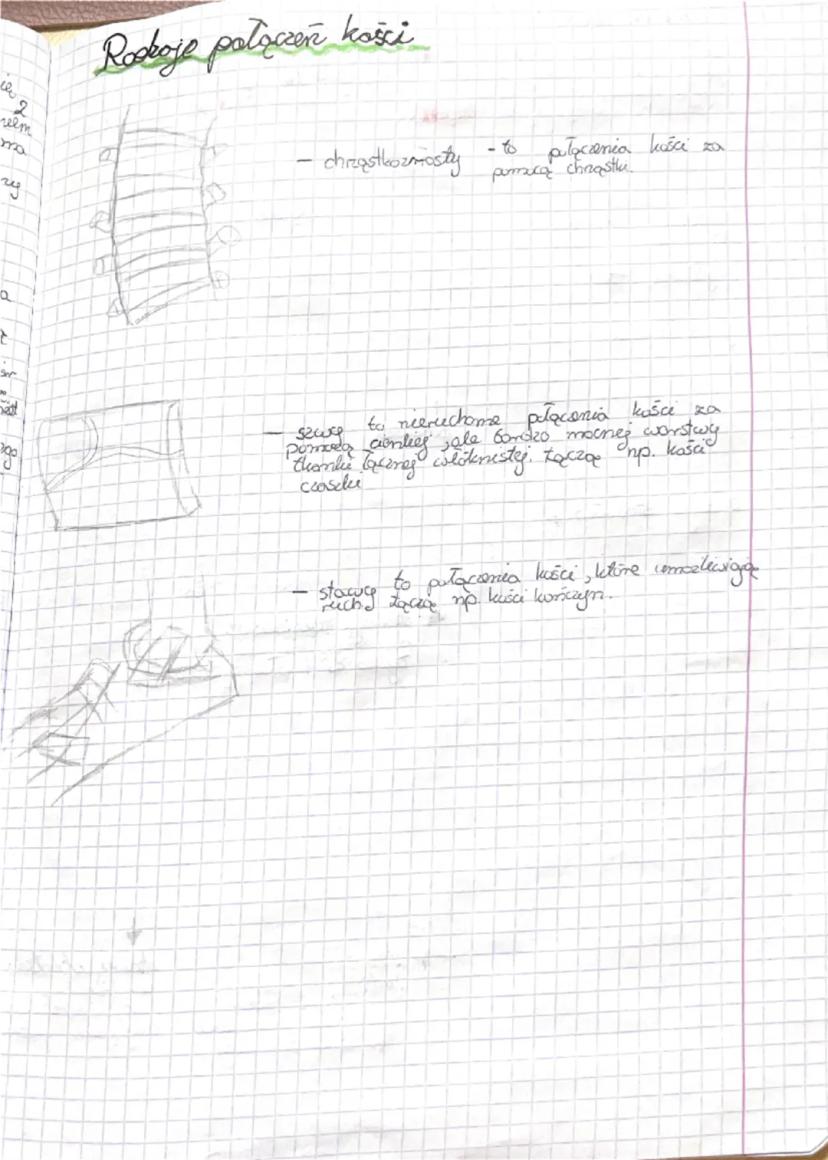 Rodzaje połączeń kości
- chrząstkozrosty - to połączenia kości za
pomocą chrząstki.
- szwy to nieruchome połączenia kości za
pomocą cienkiej, ale bardzo mocnej warstwy
tkanki łącznej włóknistej. Łączą np. kości
czaszki
- stawy to połączenia kości, które umożliwiają
ruch. Łączą np. kości kończyn.